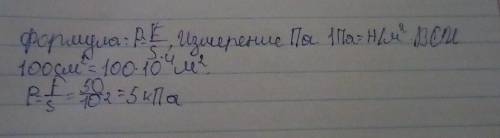 Формула: P=F/S, Измерение Па 1Па=Н/м² В СИ
100см²=100·10⁻⁴м²
P=F/S=50/10⁻²=5кПа